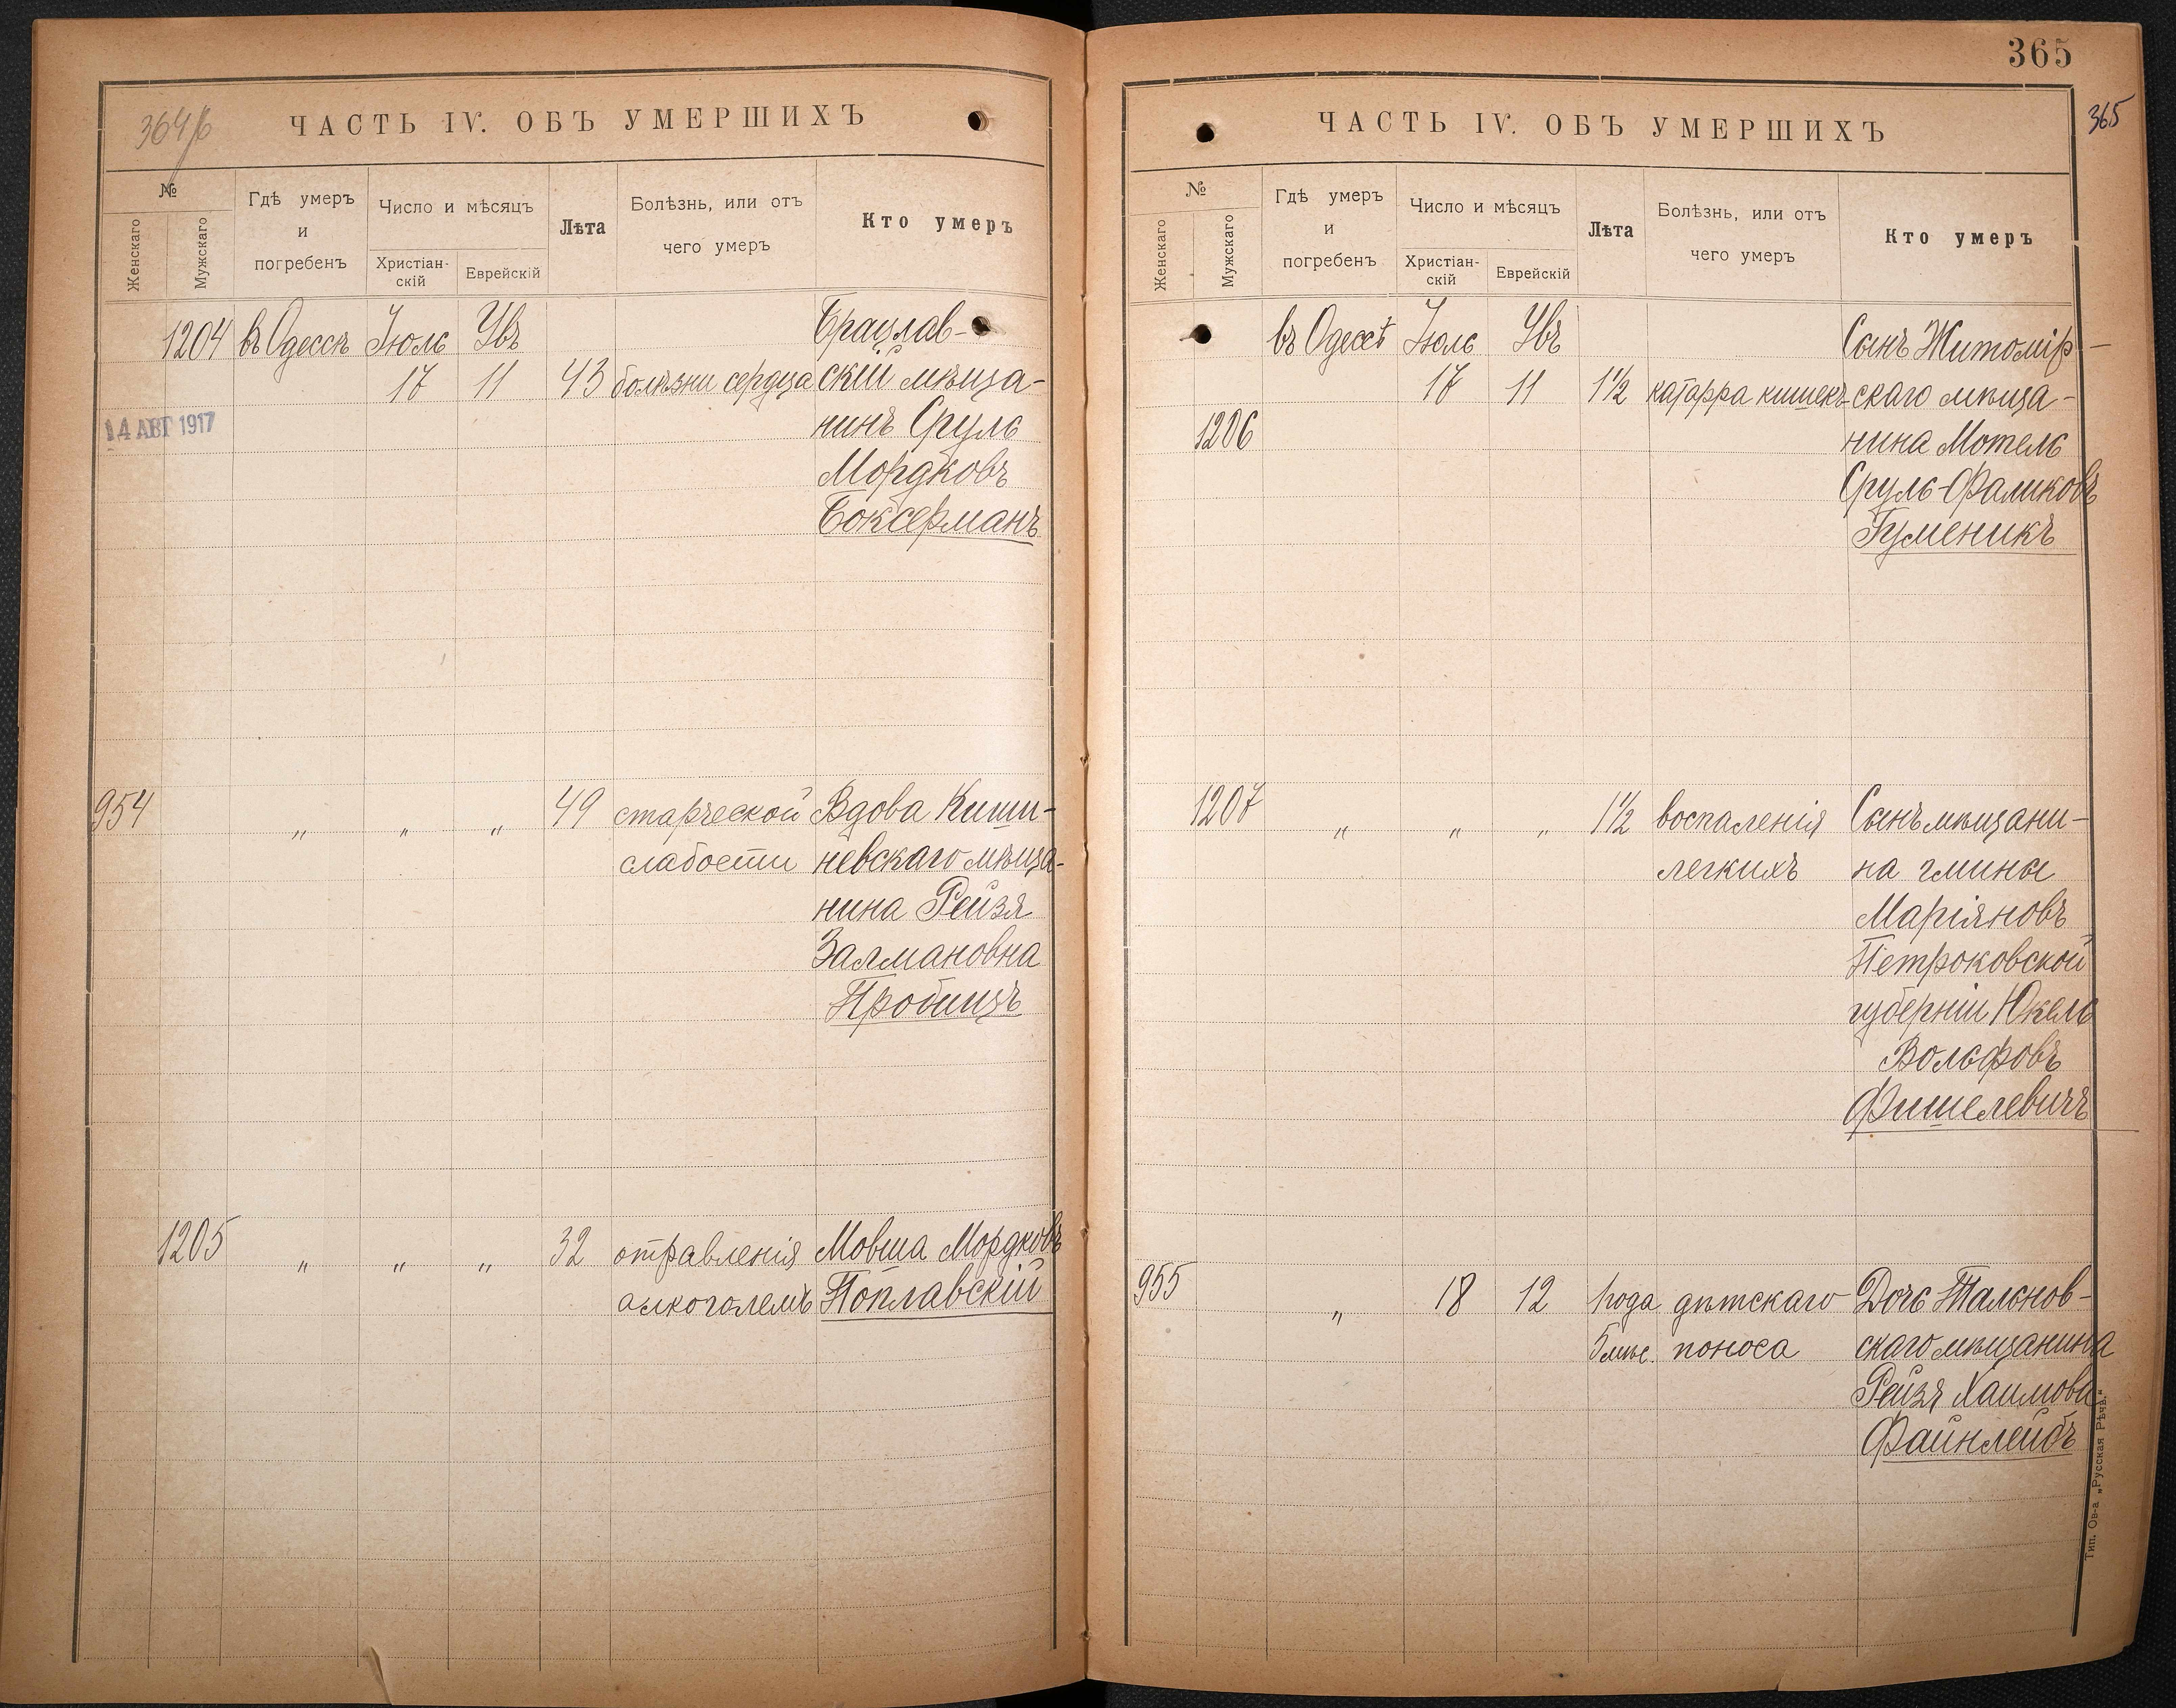 364/б
ЧАСТЬ IV. ОБЪ УМЕРШИХЪ
№
Женскаго
Мужскаго
Гдѣ умеръ
и
погребенъ
Число и мѣсяцъ
Христіан-
скій
Еврейскій
Лѣта
Болѣзнь, или отъ
чего умеръ
Кто умеръ
1204 въ Одессѣ Іюль Увъ Брацлав-
17 11 43 болѣзни сердца скій мѣща-
14 АВГ 1917
нинъ Сруль
Мордковъ
Боксерманъ
954 " " " 49 старческой Вдова Киши-
слабости невскаго мѣща-
нина Рейзя
Залмановна
Пробицъ
1205 " " " 32 отравленія Мовша Мордковъ
алкоголемъ Поплавскій
365
365
ЧАСТЬ IV. ОБЪ УМЕРШИХЪ
№
Женскаго
Мужскаго
Гдѣ умеръ
и
погребенъ
Число и мѣсяцъ
Христіан-
скій
Еврейскій
Лѣта
Болѣзнь, или отъ
чего умеръ
Кто умеръ
въ Одессѣ Іюль Увъ Сынъ Житомір-
17 11 1½ катарра кишекъ скаго мѣща-
1206 нина Мотель
Сруль-Фаликовъ
Гуменикъ
1207 " " " 1½ воспаленія Сынъ мѣщани-
легкихъ на гмины
Маріяновъ
Петроковской
губерніи Юкель
Вольфовъ
Фишелевичъ
955 " 18 12 1 года дѣтскаго Дочь Тальнов-
5 мѣс. поноса скаго мѣщанина
Рейзя Хаимова
Файнлейбъ
Тип. Ов-а „Русская Рѣчь.“